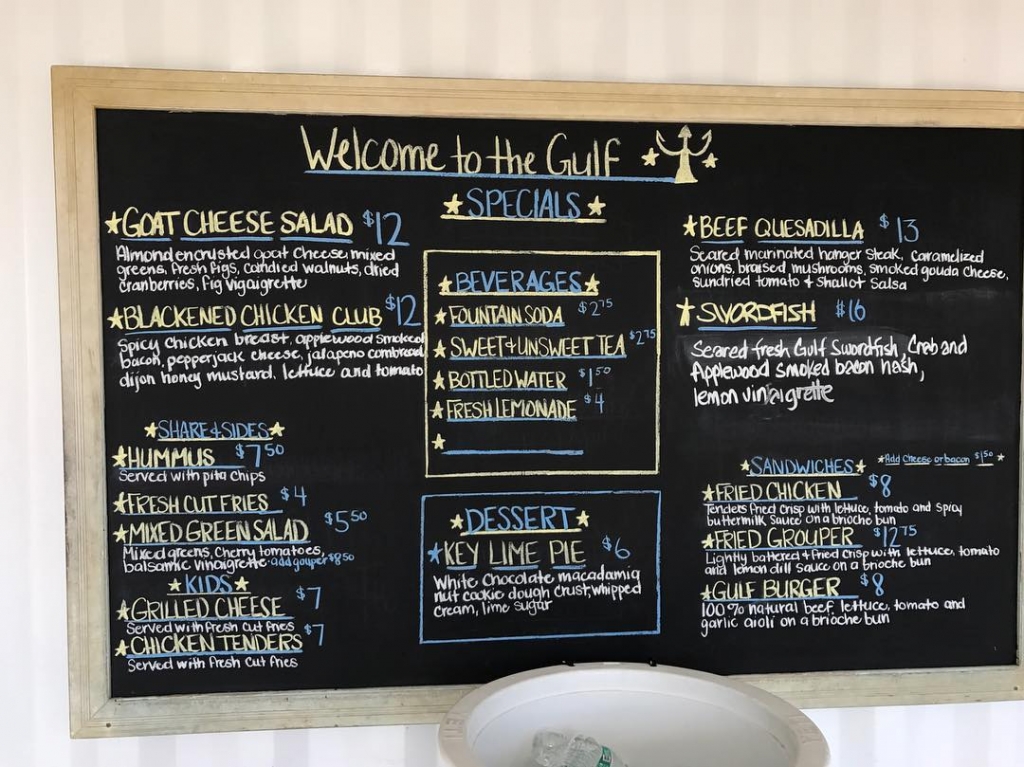 Welcome to the Gulf
SPECIALS
GOAT CHEESE SALAD $12
Almond encrusted goat cheese, mixed
greens, fresh figs, candied walnuts, dried
cranberries, fig vigaigrette
BLACKENED CHICKEN CLUB $12
Spicy chicken breast, applewood smoked
bacon, pepperjack cheese, jalapeno cornbread,
dijon honey mustard, lettuce and tomato
SHARE & SIDES
HUMMUS $7.50
Served with pita chips
FRESH CUT FRIES $4
MIXED GREEN SALAD $5.50
Mixed greens, Cherry tomatoes,
balsamic vinaigrette - add gouper $8.50
KIDS
GRILLED CHEESE $7
Served with fresh cut fries
CHICKEN TENDERS $7
Served with fresh cut fries
BEVERAGES
FOUNTAIN SODA $2.75
SWEET & UNSWEET TEA $2.75
BOTTLED WATER $1.50
FRESH LEMONADE $4
DESSERT
KEY LIME PIE $6
White chocolate macadamia
nut cookie dough crust, whipped
cream, lime sugar
BEEF QUESADILLA $13
Seared marinated hanger steak, caramelized
onions, braised mushrooms, smoked gouda cheese,
sundried tomato & shallot salsa
SWORDFISH $16
Seared fresh Gulf Swordfish, Crab and
Applewood smoked bacon hash,
lemon vinaigrette
SANDWICHES
Add Cheese or bacon $1.50
FRIED CHICKEN $8
Tenders fried crisp with lettuce, tomato and spicy
buttermilk sauce on a brioche bun
FRIED GROUPER $12.75
Lightly battered & fried crisp with lettuce, tomato
and lemon dill sauce on a brioche bun
GULF BURGER $8
100% natural beef, lettuce, tomato and
garlic aioli on a brioche bun